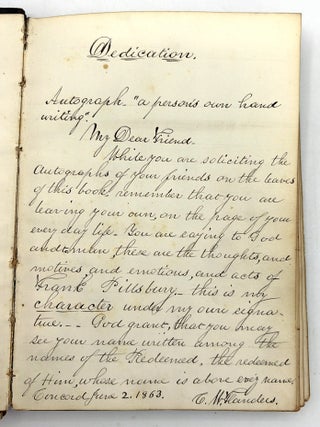 Dedication.
Autograph - "a person's own hand
writing".
My Dear Friend.
While you are soliciting the
Autographs of your friends on the leaves
of this book, remember that you are
leaving your own, on the page of your
every day life. You are saying to God
and man, these are the thoughts, and
motives, and emotions, and acts of
Frank Pillsbury - this is my
character under my own signa-
ture. - - God grant, that you may
see your name written among the
names of the Redeemed, the redeemed
of Him, whose name is above every name,
Concord June 2. 1863. C. W. Flanders.